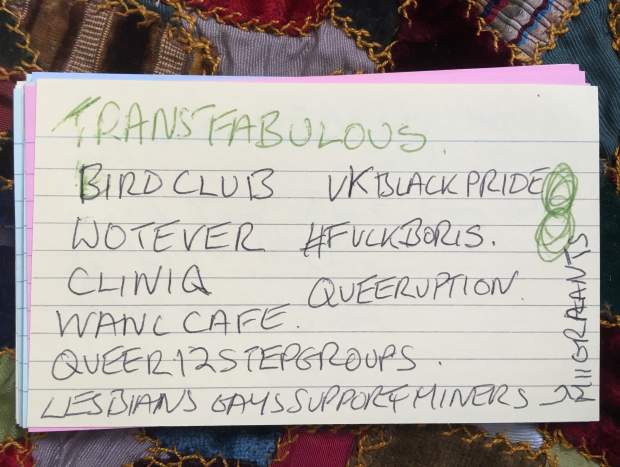 TRANSFABULOUS.
BIRD CLUB UKBLACKPRIDE
WOTEVER #FUCKBORIS.
CLINIQ QUEERUPTION.
WANC CAFE.
QUEER12STEPGROUPS.
LESBIANS GAYSSUPPORTMINERS